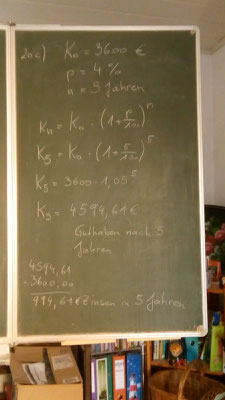 20c) K₀ = 3600 €
p = 4 %
n = 5 Jahren
Kₙ = K₀ · (1 + p/100)ⁿ
K₅ = K₀ · (1 + p/100)⁵
K₅ = 3600 · 1,05⁵
K₅ = 4594,61 €
Guthaben nach 5
Jahren
4594,61
- 3600,00
994,61 € Zinsen in 5 Jahren